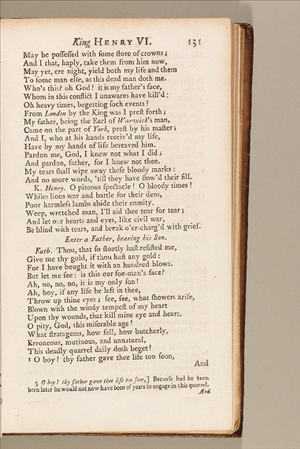 King HENRY VI. 131
May be poſſeſſed with ſome ſtore of crowns;
And I that, haply, take them from him now,
May yet, ere night, yield both my life and them
To ſome man elſe, as this dead man doth me.
Who's this? oh God! it is my father's face,
Whom in this conflict I unawares have kill'd:
Oh heavy times, begetting ſuch events!
From London by the King was I preſt forth;
My father, being the Earl of Warwick's man,
Came on the part of York, preſt by his maſter;
And I, who at his hands receiv'd my life,
Have by my hands of life bereaved him.
Pardon me, God, I knew not what I did;
And pardon, father, for I knew not thee.
My tears ſhall wipe away theſe bloody marks:
And no more words, 'till they have flow'd their fill.
K. Henry. O piteous ſpectacle! O bloody times!
Whiles lions war and battle for their dens,
Poor harmleſs lambs abide their enmity.
Weep, wretched man, I'll aid thee tear for tear;
And let our hearts and eyes, like civil war,
Be blind with tears, and break o'er-charg'd with grief.
Enter a Father, bearing his Son.
Fath. Thou, that ſo ſtoutly haſt reſiſted me,
Give me thy gold, if thou haſt any gold:
For I have bought it with an hundred blows.
But let me ſee: is this our foe-man's face?
Ah, no, no, no, it is my only ſon!
Ah, boy, if any life be left in thee,
Throw up thine eyes; ſee, ſee, what ſhowers ariſe,
Blown with the windy tempeſt of my heart
Upon thy wounds, that kill mine eye and heart.
O pity, God, this miſerable age!
What ſtratagems, how fell, how butcherly,
Erroneous, mutinous, and unnatural,
This deadly quarrel daily doth beget!
3 O boy! thy father gave thee life too ſoon,
And
3 O boy! thy father gave thee life too ſoon,] Becauſe had he been
born later he would not now have been of years to engage in this quarrel.
And